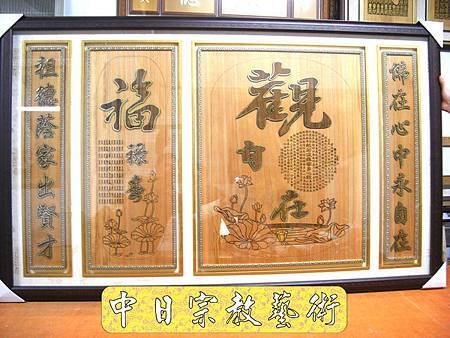 佛在心中永自在
觀自在
福祿壽
祖德蔭家出賢才
中日宗教藝術